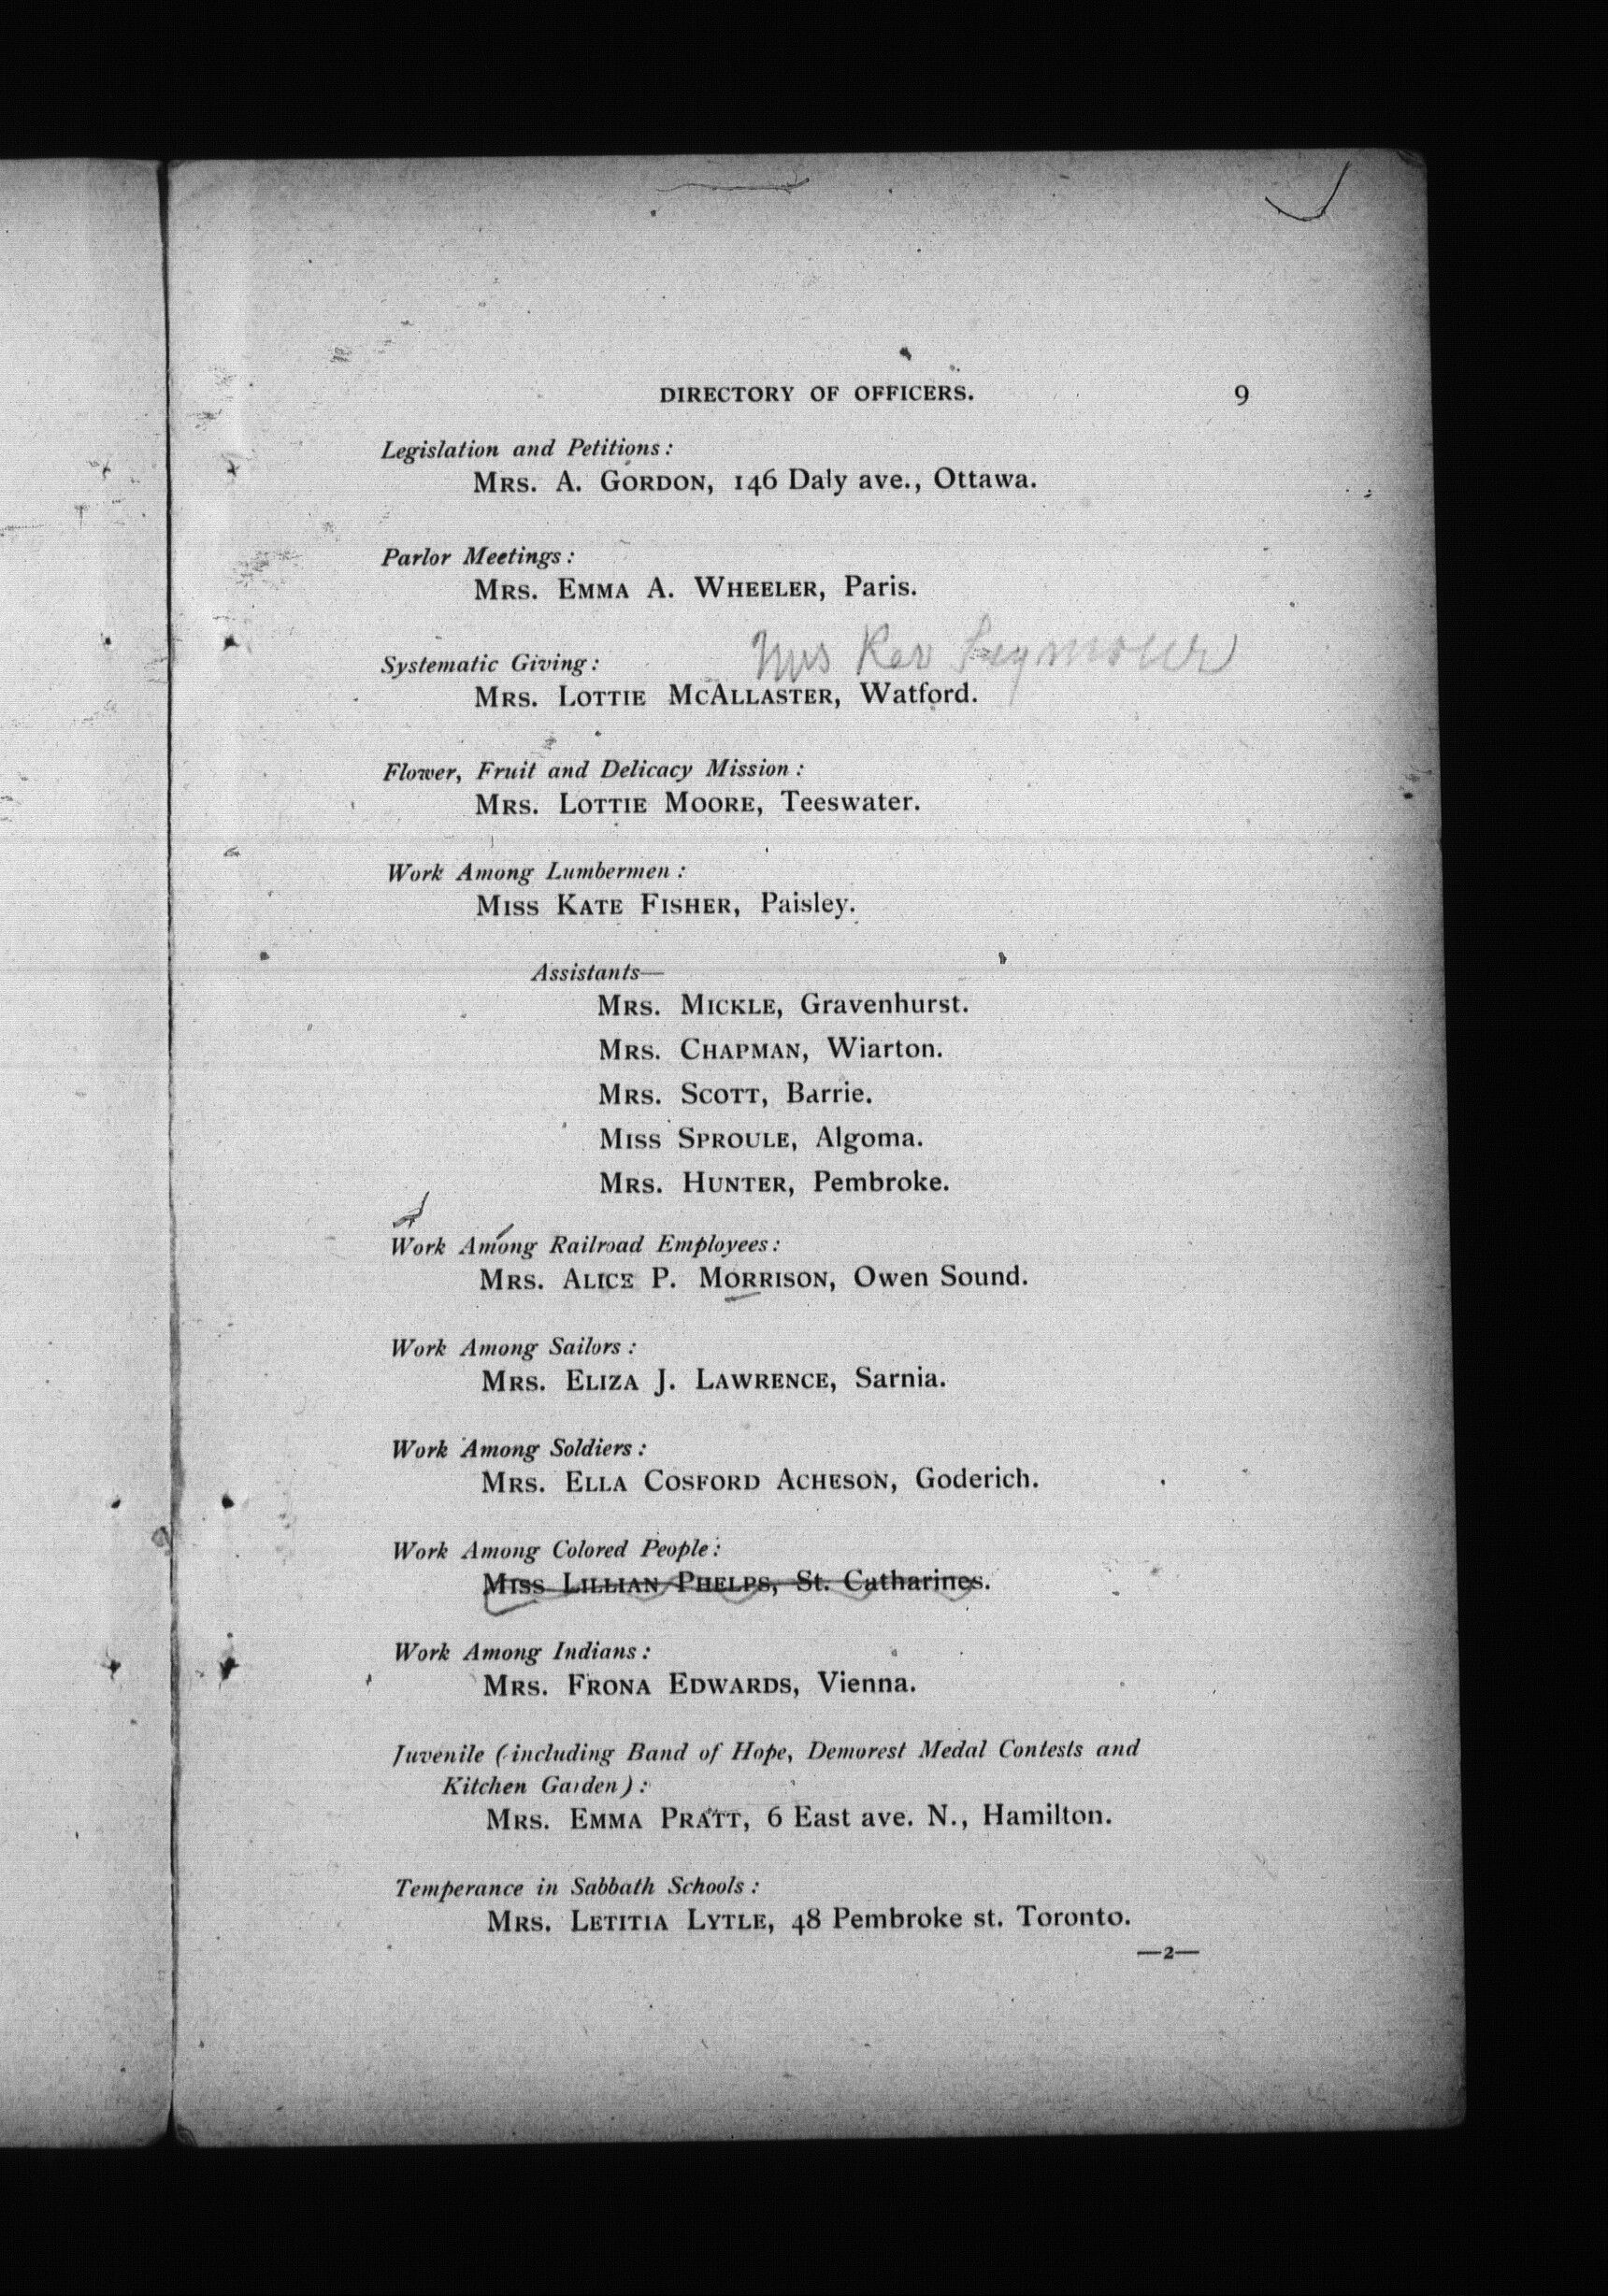 DIRECTORY OF OFFICERS. 9
Legislation and Petitions:
MRS. A. GORDON, 146 Daly ave., Ottawa.
Parlor Meetings:
MRS. EMMA A. WHEELER, Paris.
Mrs Rev Seymour
Systematic Giving:
MRS. LOTTIE MCALLASTER, Watford.
Flower, Fruit and Delicacy Mission:
MRS. LOTTIE MOORE, Teeswater.
Work Among Lumbermen:
MISS KATE FISHER, Paisley.
Assistants—
MRS. MICKLE, Gravenhurst.
MRS. CHAPMAN, Wiarton.
MRS. SCOTT, Barrie.
MISS SPROULE, Algoma.
MRS. HUNTER, Pembroke.
Work Among Railroad Employees:
MRS. ALICE P. MORRISON, Owen Sound.
Work Among Sailors:
MRS. ELIZA J. LAWRENCE, Sarnia.
Work Among Soldiers:
MRS. ELLA COSFORD ACHESON, Goderich.
Work Among Colored People:
MISS LILLIAN PHELPS, St. Catharines.
Work Among Indians:
MRS. FRONA EDWARDS, Vienna.
Juvenile (including Band of Hope, Demorest Medal Contests and
Kitchen Garden):
MRS. EMMA PRATT, 6 East ave. N., Hamilton.
Temperance in Sabbath Schools:
MRS. LETITIA LYTLE, 48 Pembroke st. Toronto.
—2—